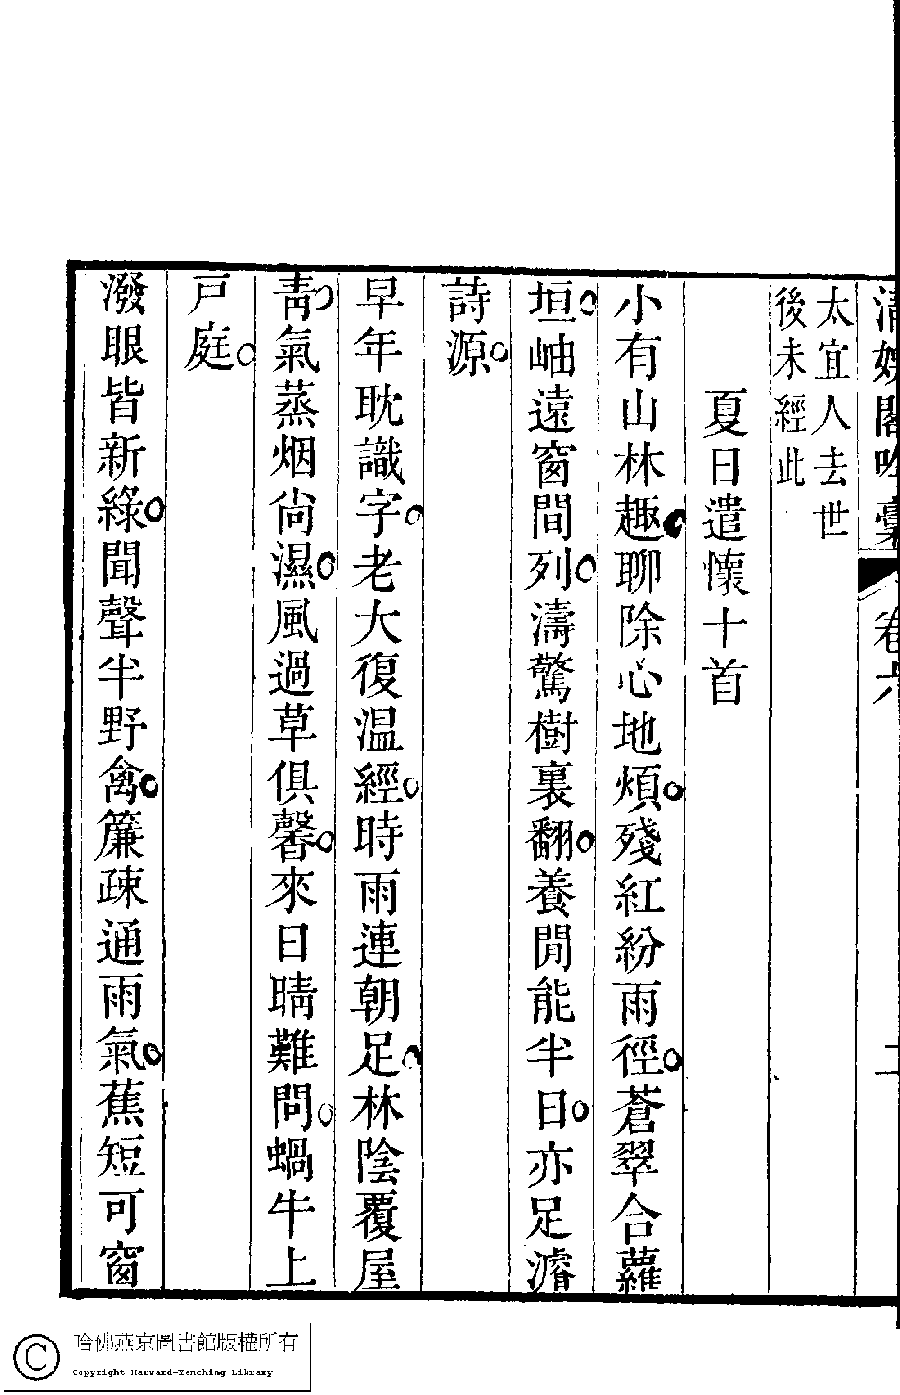 清娛閣吟藁 卷六 二
太宜人去世
後未經此
夏日遣懷十首
小有山林趣聊除心地煩殘紅紛雨徑蒼翠合蘿
垣岫遠窗間列濤驚樹裏翻養閒能半日亦足濬
詩源
早年耽識字老大復溫經時雨連朝足林陰覆屋
靑氣蒸烟尙濕風過草俱馨來日晴難問蝸牛上
戸庭
潑眼皆新綠聞聲半野禽簾疎通雨氣蕉短可窗
哈佛燕京圖書館版權所有
Copyright Harvard-Yenching Library